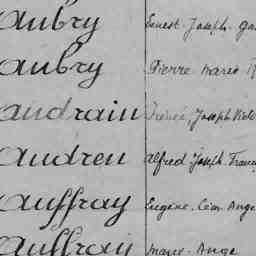 Aubry Ernest-Joseph-
Aubry Pierre Marie
Audrain Joseph
Audren Alfred Joseph
Auffray Eugène. Ange
Auffray Marie-Ange